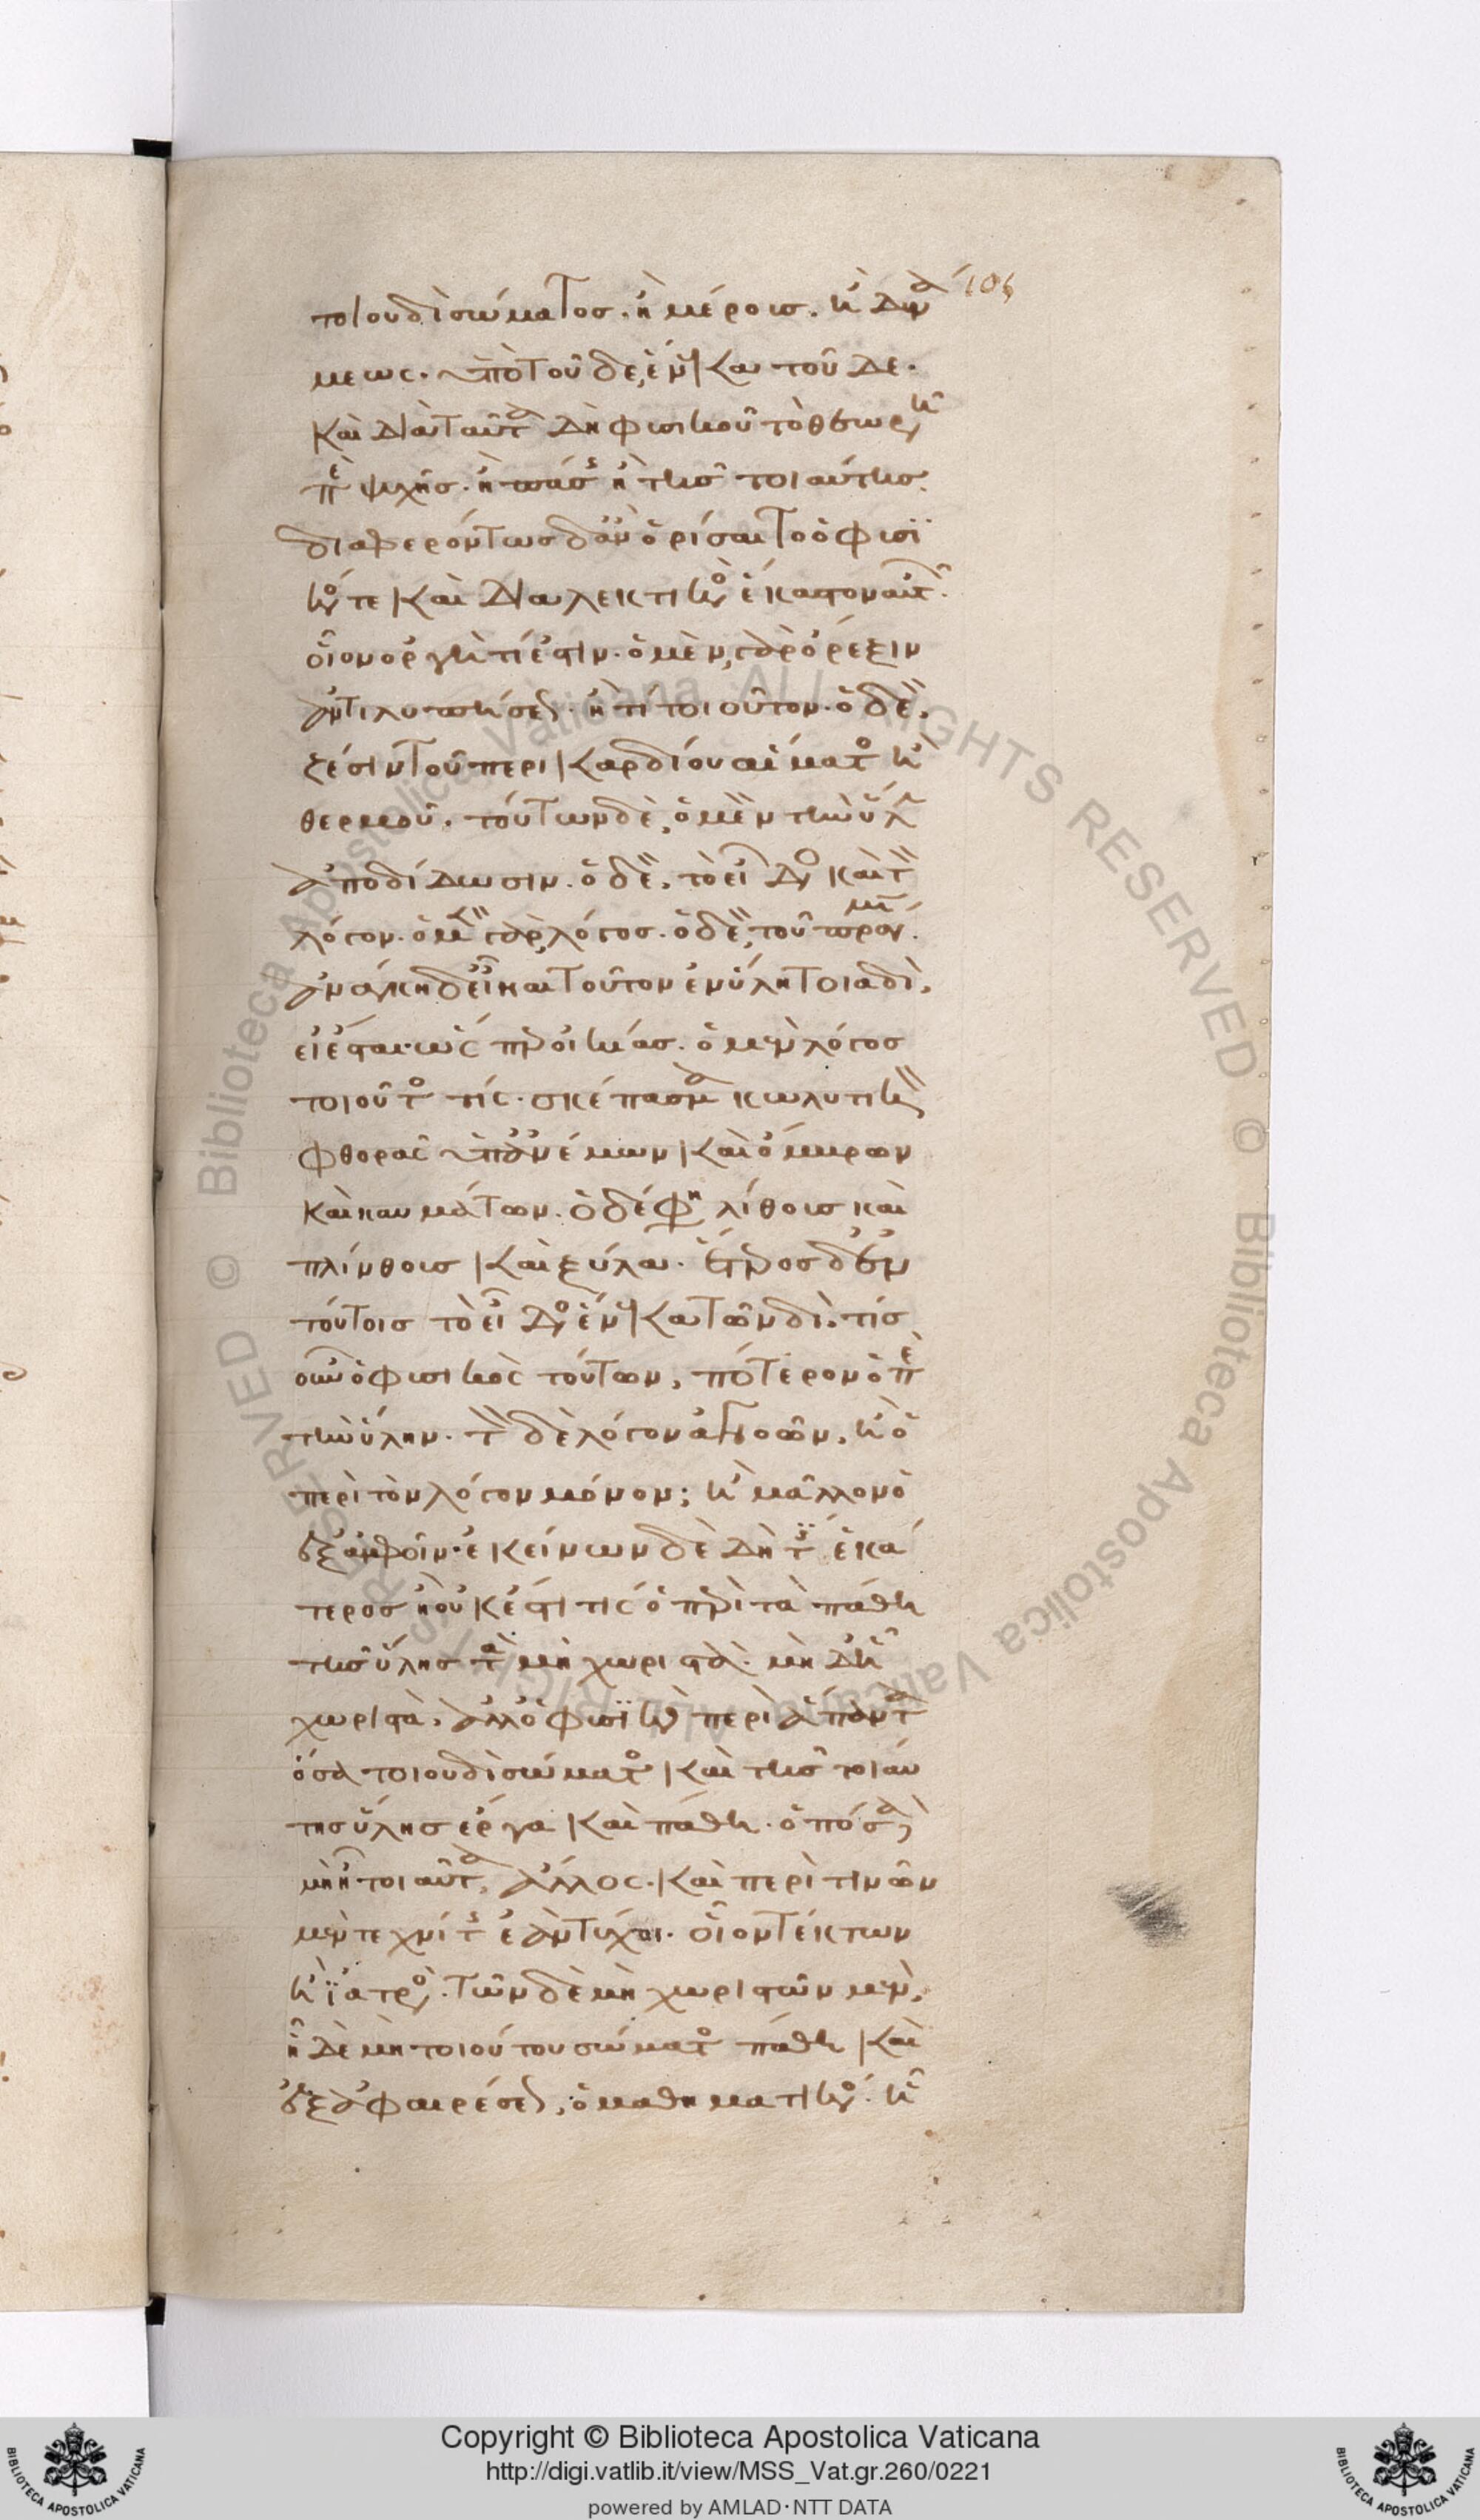 106
τοιουδὶ σώματος. ἢ μέρους. ἢ δυνά
μεως. ὑπὸ τοῦδε, ἕνεκα τοῦδε.
καὶ διὰ ταῦτα δὴ φυσικοῦ τὸ θεωρῆσαι
περὶ ψυχῆς. ἢ πάσης ἢ τῆς τοιαύτης.
διαφερόντως δ' ἂν ὁρίσαιτο ὁ φυσι
κός τε καὶ διαλεκτικὸς ἕκαστον αὐτῶν.
οἷον ὀργὴ τί ἐστιν. ὁ μὲν γὰρ ὄρεξιν
ἀντιλυπήσεως. ἤ τι τοιοῦτον. ὁ δὲ,
ζέσιν τοῦ περικαρδίου αἵματος ἢ
θερμοῦ. τούτων δὲ, ὁ μὲν τὴν ὕλην
ἀποδίδωσιν. ὁ δὲ, τὸ εἶδος καὶ τὸν
λόγον. ὁ μὲν γὰρ λόγος. ὅδε τοῦ πράγμα.
ἀνάγκη δ' εἶναι τοῦτον ἐν ὕλῃ τοιᾳδὶ,
εἰ ἔσται. ὡς περ οἰκίας. ὁ μὲν λόγος
τοιοῦτος τίς. σκέπασμα κωλυτικὸν
φθορᾶς ὑπ' ἀνέμων καὶ ὄμβρων
καὶ καυμάτων. ὁ δέ φησι λίθους καὶ
πλίνθους καὶ ξύλα. ἕτερος δ' ἐν
τούτοις τὸ εἶδος ἕνεκα τῶνδί. τίς
οὖν ὁ φυσικὸς τούτων, πότερον ὁ περὶ
τὴν ὕλην. τὸν δὲ λόγον ἀγνοῶν, ἢ ὁ
περὶ τὸν λόγον μόνον; ἢ μᾶλλον ὁ
ἐξ ἀμφοῖν. ἐκείνων δὲ δὴ τίς ἑκά
τερος ἢ οὐκ ἔστι τίς ὁ περὶ τὰ πάθη
τῆς ὕλης τὰ μὴ χωριστὰ. μηδ' ᾗ
χωριστὰ, ἀλλ' ὁ φυσικὸς περὶ ἅπαντα
ὅσα τοιουδὶ σώματος καὶ τῆς τοιαύ
της ὕλης ἔργα καὶ πάθη. ὁπόσα δὲ
μὴ ᾗ τοιαῦτα, ἄλλος. καὶ περὶ τινῶν
μὲν τεχνίτης ἐὰν τύχοι. οἷον τέκτων
ἢ ἰατρὸς. τῶν δὲ μὴ χωριστῶν μὲν,
ᾗ δὲ μὴ τοιούτου σώματος πάθη καὶ
ἐξ ἀφαιρέσεως, ὁ μαθηματικός. ᾗ
Copyright © Biblioteca Apostolica Vaticana
http://digi.vatlib.it/view/MSS_Vat.gr.260/0221
powered by AMLAD·NTT DATA
Biblioteca Apostolica Vaticana ALL RIGHTS RESERVED © Biblioteca Apostolica Vaticana ALL RIGHTS RESERVED ©
BIBLIOTECA APOSTOLICA VATICANA
BIBLIOTECA APOSTOLICA VATICANA